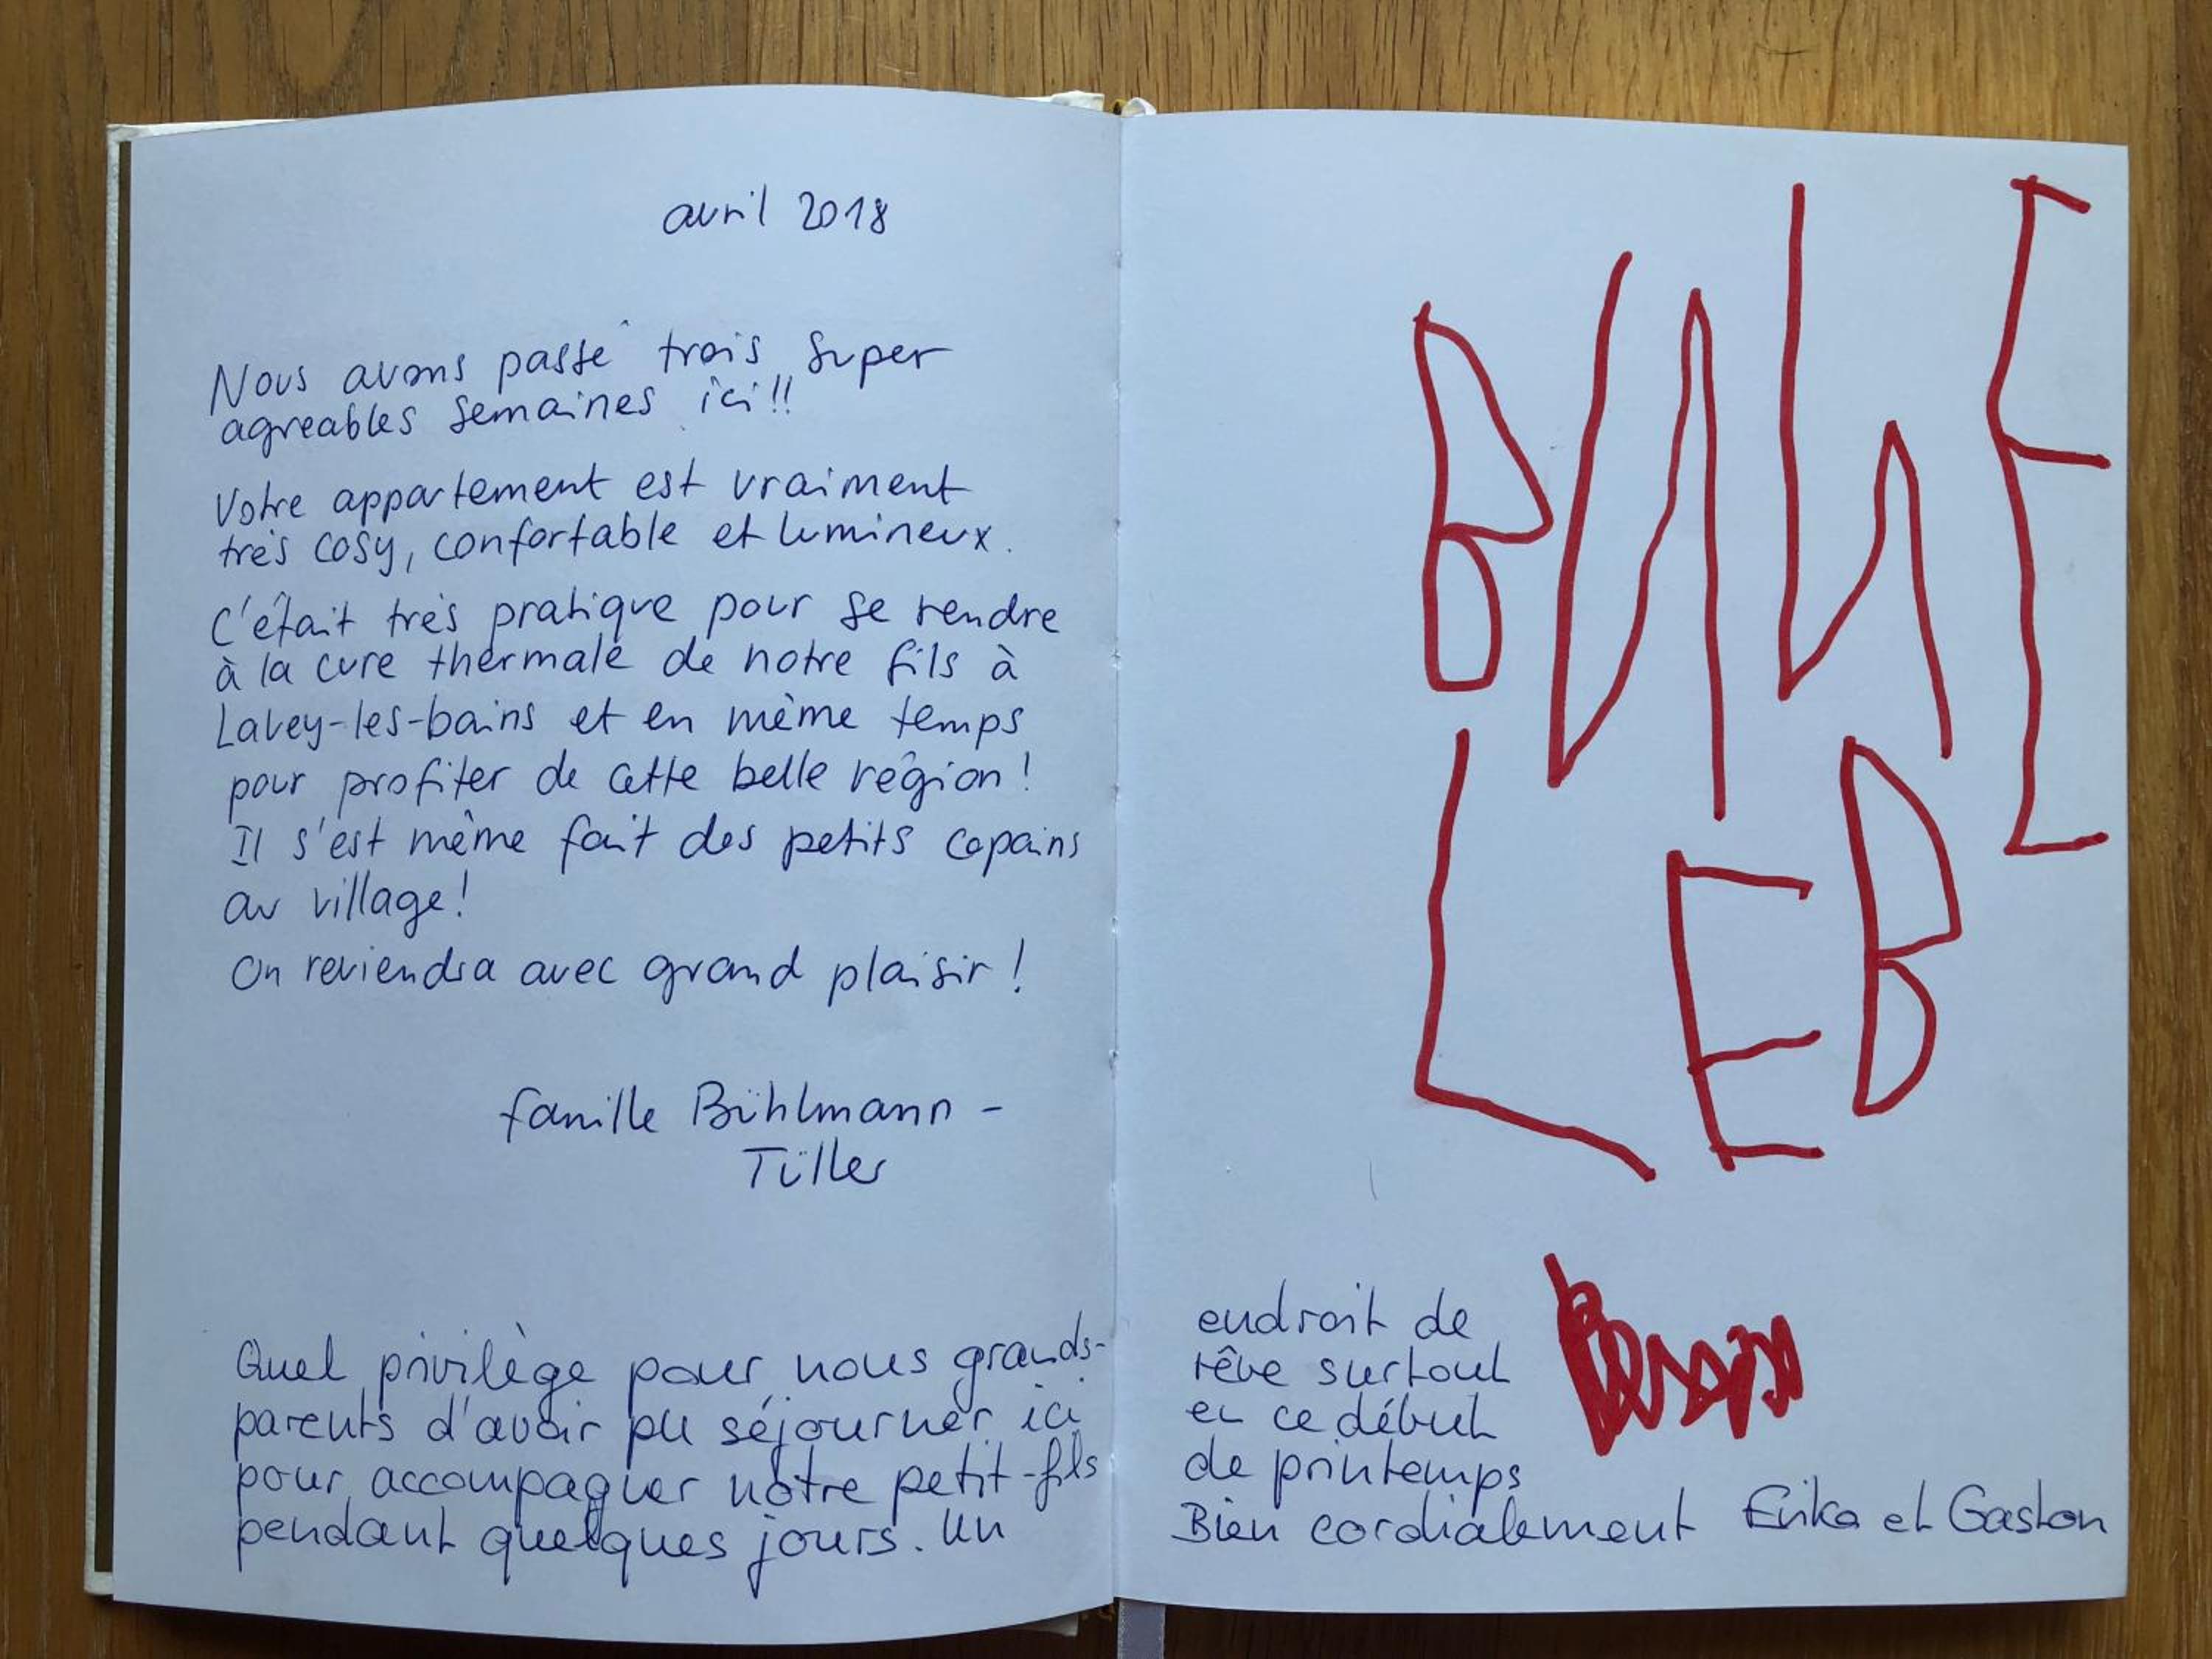 avril 2018
Nous avons passé trois super
agreables semaines ici!!
Votre appartement est vraiment
très cosy, confortable et lumineux.
C'était très pratique pour se rendre
à la cure thermale de notre fils à
Lavey-les-bains et en même temps
pour profiter de cette belle région!
Il s'est même fait des petits copains
au village!
On reviendra avec grand plaisir!
famille Bühlmann-
Tüller
Quel privilège pour nous grands-
parents d'avoir pu séjourner ici
pour accompagner notre petit-fils
pendant quelques jours. Un
endroit de
rêve surtout
en ce début
de printemps
Bien cordialement Erika et Gaston
LEB